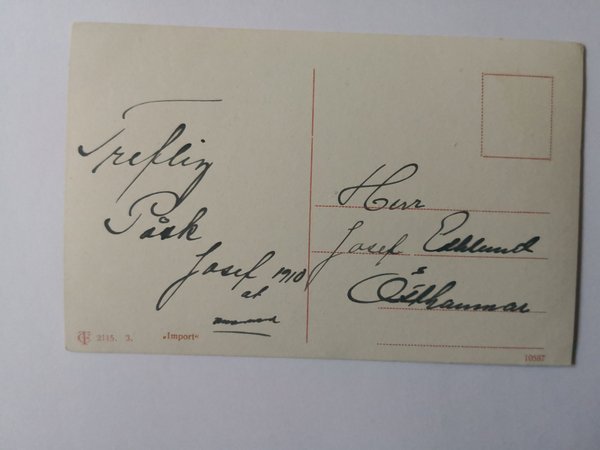 Treflig
Påsk
Josef 1910
at
Herr
Josef Edhlund
Östhammar
2115. 3.
„Import“
10587